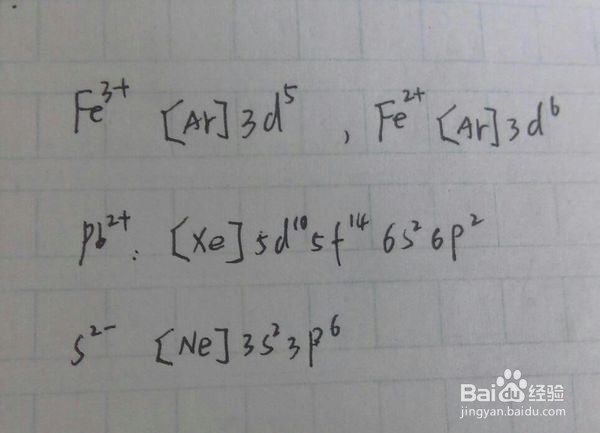 Fe³⁺ [Ar]3d⁵ , Fe²⁺ [Ar]3d⁶
Pb²⁺: [Xe]5d¹⁰5f¹⁴ 6s²6p²
S²⁻ [Ne]3s²3p⁶
Bai du 经验
jingyan.baidu.com